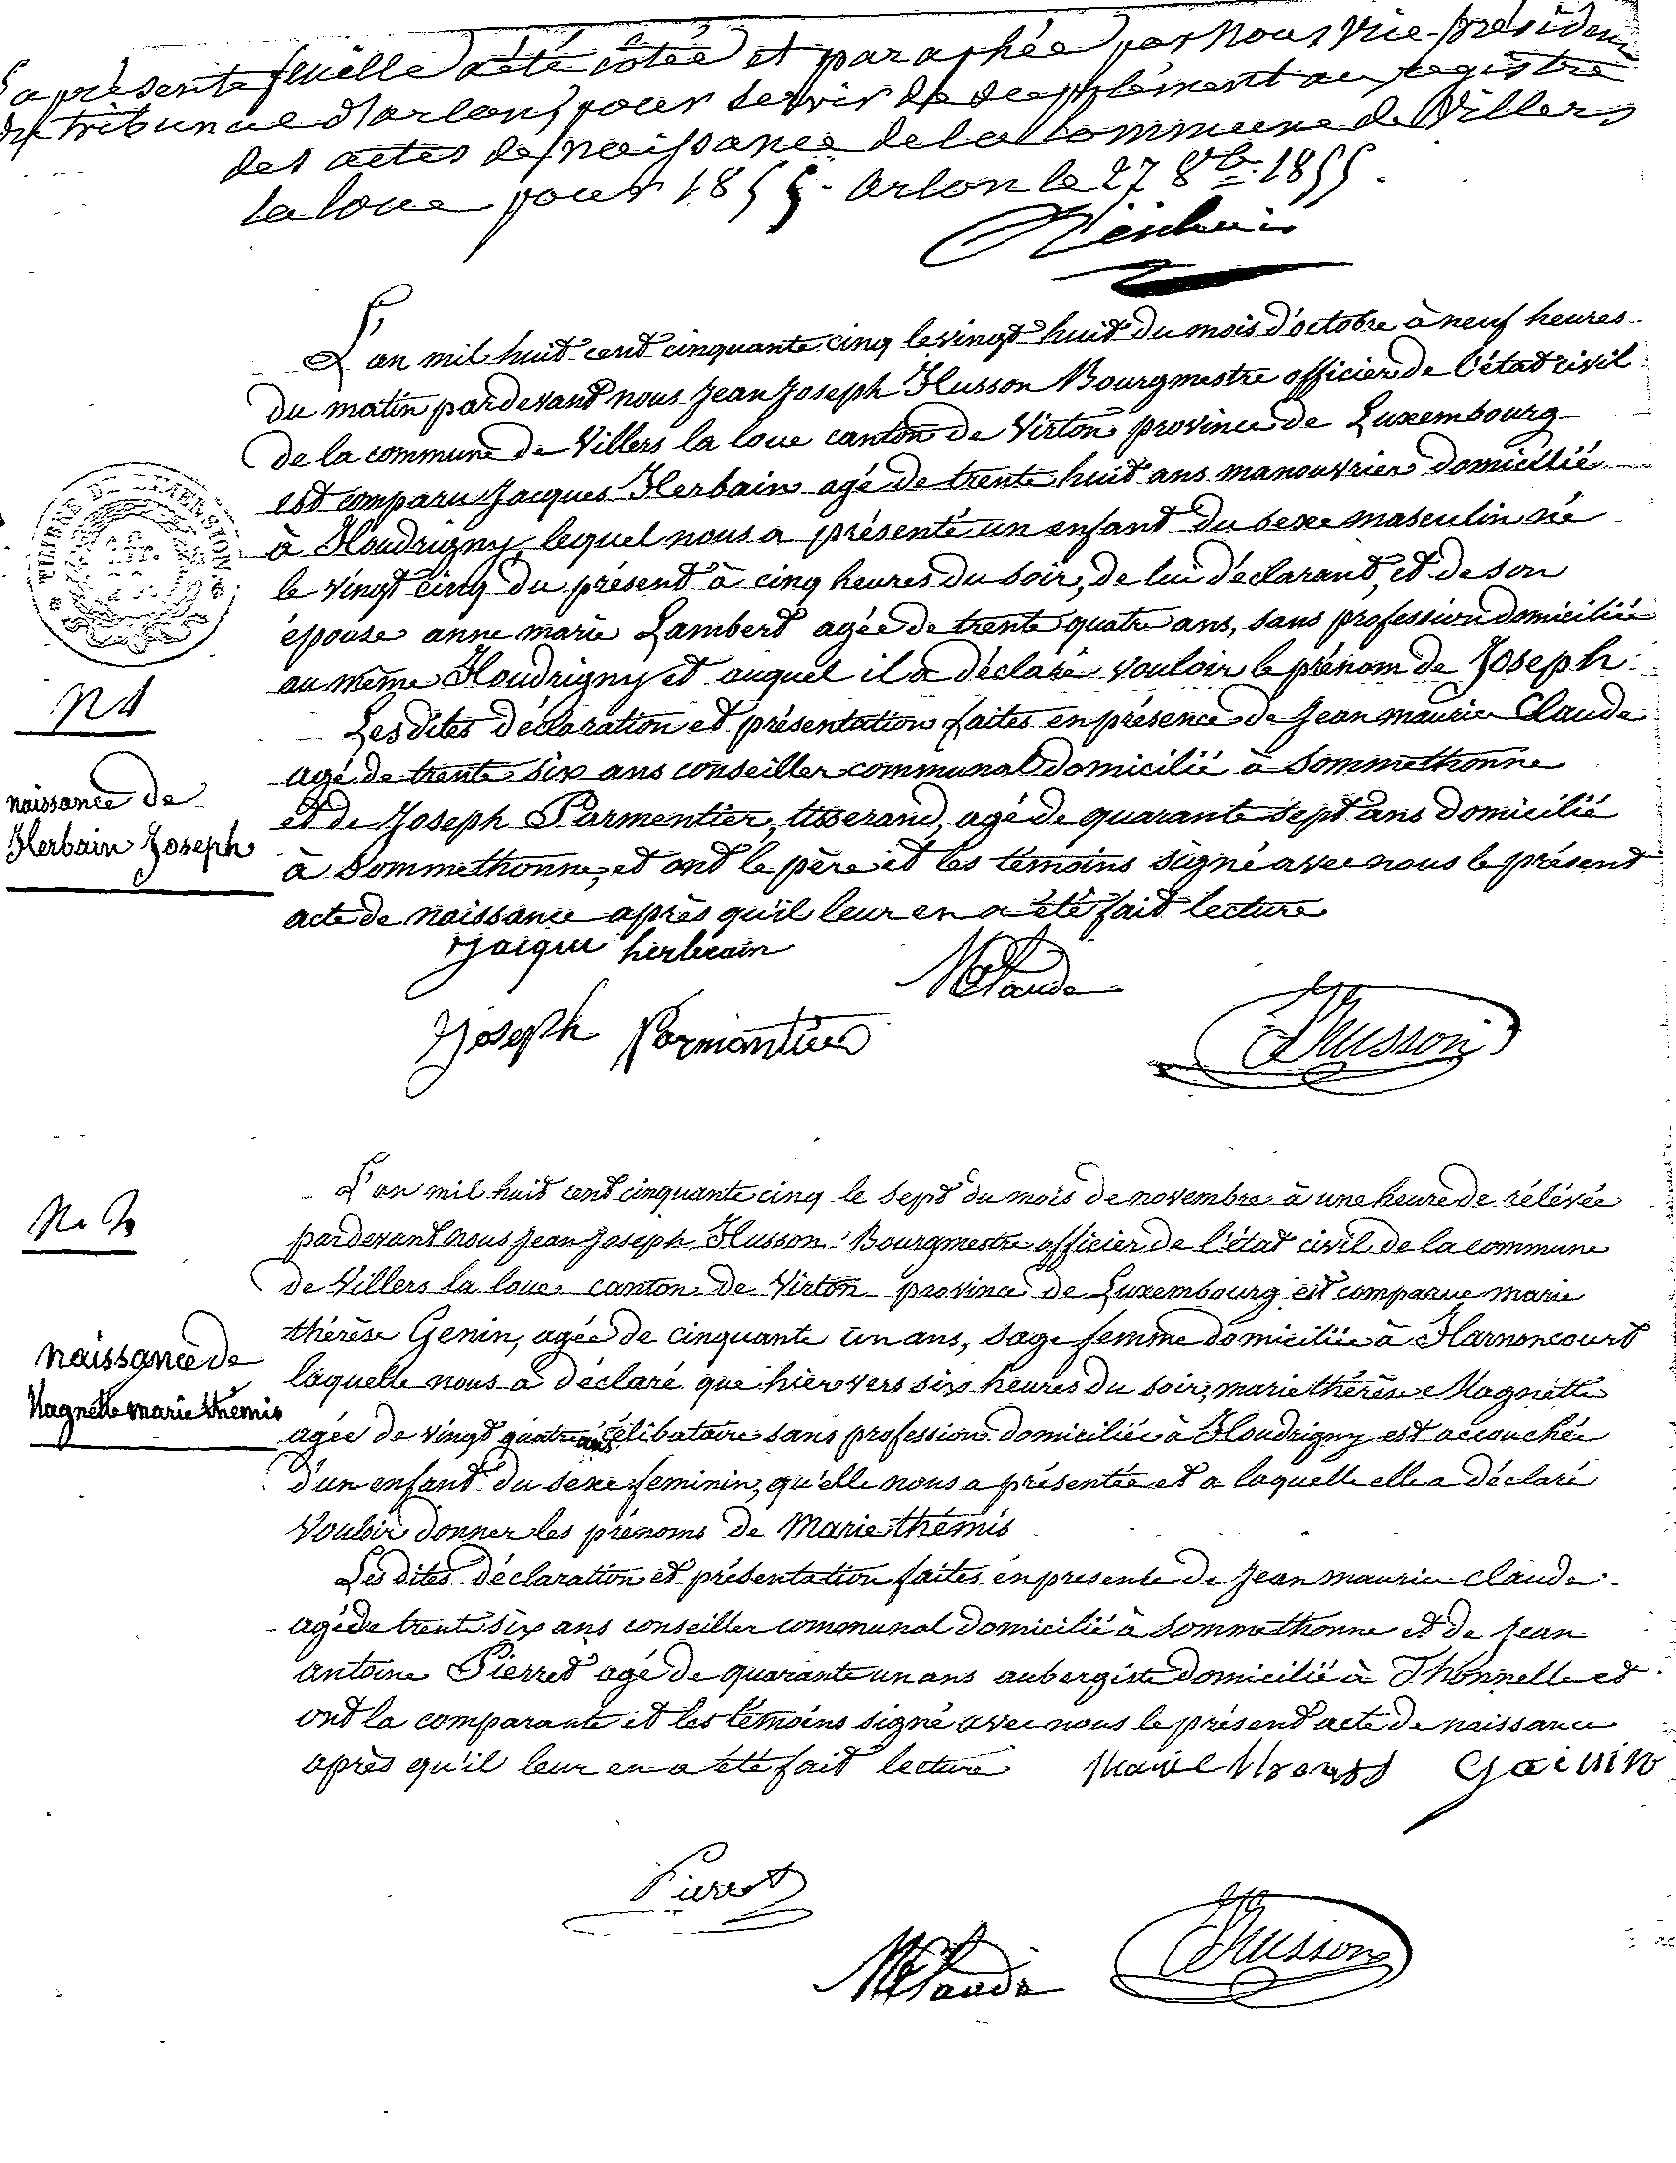 La présente feuille a été cotée et paraphée par nous vice-président
du tribunal d'arlon, pour servir de supplément au registre
des actes de naissance de la Commune de Villers
la loue pour 1855. Arlon le 27 8bre 1855.
L'an mil huit cent cinquante cinq le vingt huit du mois d'octobre à neuf heures
du matin pardevant nous Jean Joseph Husson Bourgmestre officier de l'état civil
de la commune de Villers la loue canton de Virton province de Luxembourg
est comparu Jacques Herbain agé de trente huit ans manouvrier domicilié
à Houdrigny, lequel nous a présenté un enfant du sexe masculin né
le vingt cinq du présent à cinq heures du soir, de lui déclarant, et de son
épouse anne marie Lambert agée de trente quatre ans, sans profession domiciliée
au même Houdrigny et auquel il a déclaré vouloir le prénom de Joseph
N 1
Les dites déclaration et présentation faites en présence de Jean maurice Claude
agé de trente six ans conseiller communal domicilié à Sommethonne
naissance de
Herbain Joseph
et de Joseph Parmentier, tisserand, agé de quarante sept ans domicilié
à Sommethonne, et ont le père et les témoins signé avec nous le présent
acte de naissance après qu'il leur en a été fait lecture
Jacque herbain
MClaude
Joseph Parmantier
Husson
N. 2
L'an mil huit cent cinquante cinq le sept du mois de novembre à une heure de rélévée
pardevant nous Jean Joseph Husson Bourgmestre officier de l'état civil de la commune
de Villers la loue canton de Virton province de Luxembourg est comparue marie
thérèse Genin, agée de cinquante un ans, sage femme domiciliée à Harnoncourt
naissance de
Magnette marie thémis
laquelle nous a déclaré que hier vers six heures du soir, marie thérèse Magnette
agée de vingt quatre ans célibataire sans profession domiciliée à Houdrigny est accouchée
d'un enfant du sexe feminin, qu'elle nous a présentée et a laquelle elle a déclaré
vouloir donner les prénoms de Marie thémis
Les dites déclaration et présentation faites en présente de Jean maurice claude
agé de trente six ans conseiller communal domicilié à Sommethonne et de Jean
antoine Pierret agé de quarante un ans aubergiste domicilié à Thonnelle et
ont la comparante et les témoins signé avec nous le présent acte de naissance
après qu'il leur en a été fait lecture
Pierret
MClaude
Husson